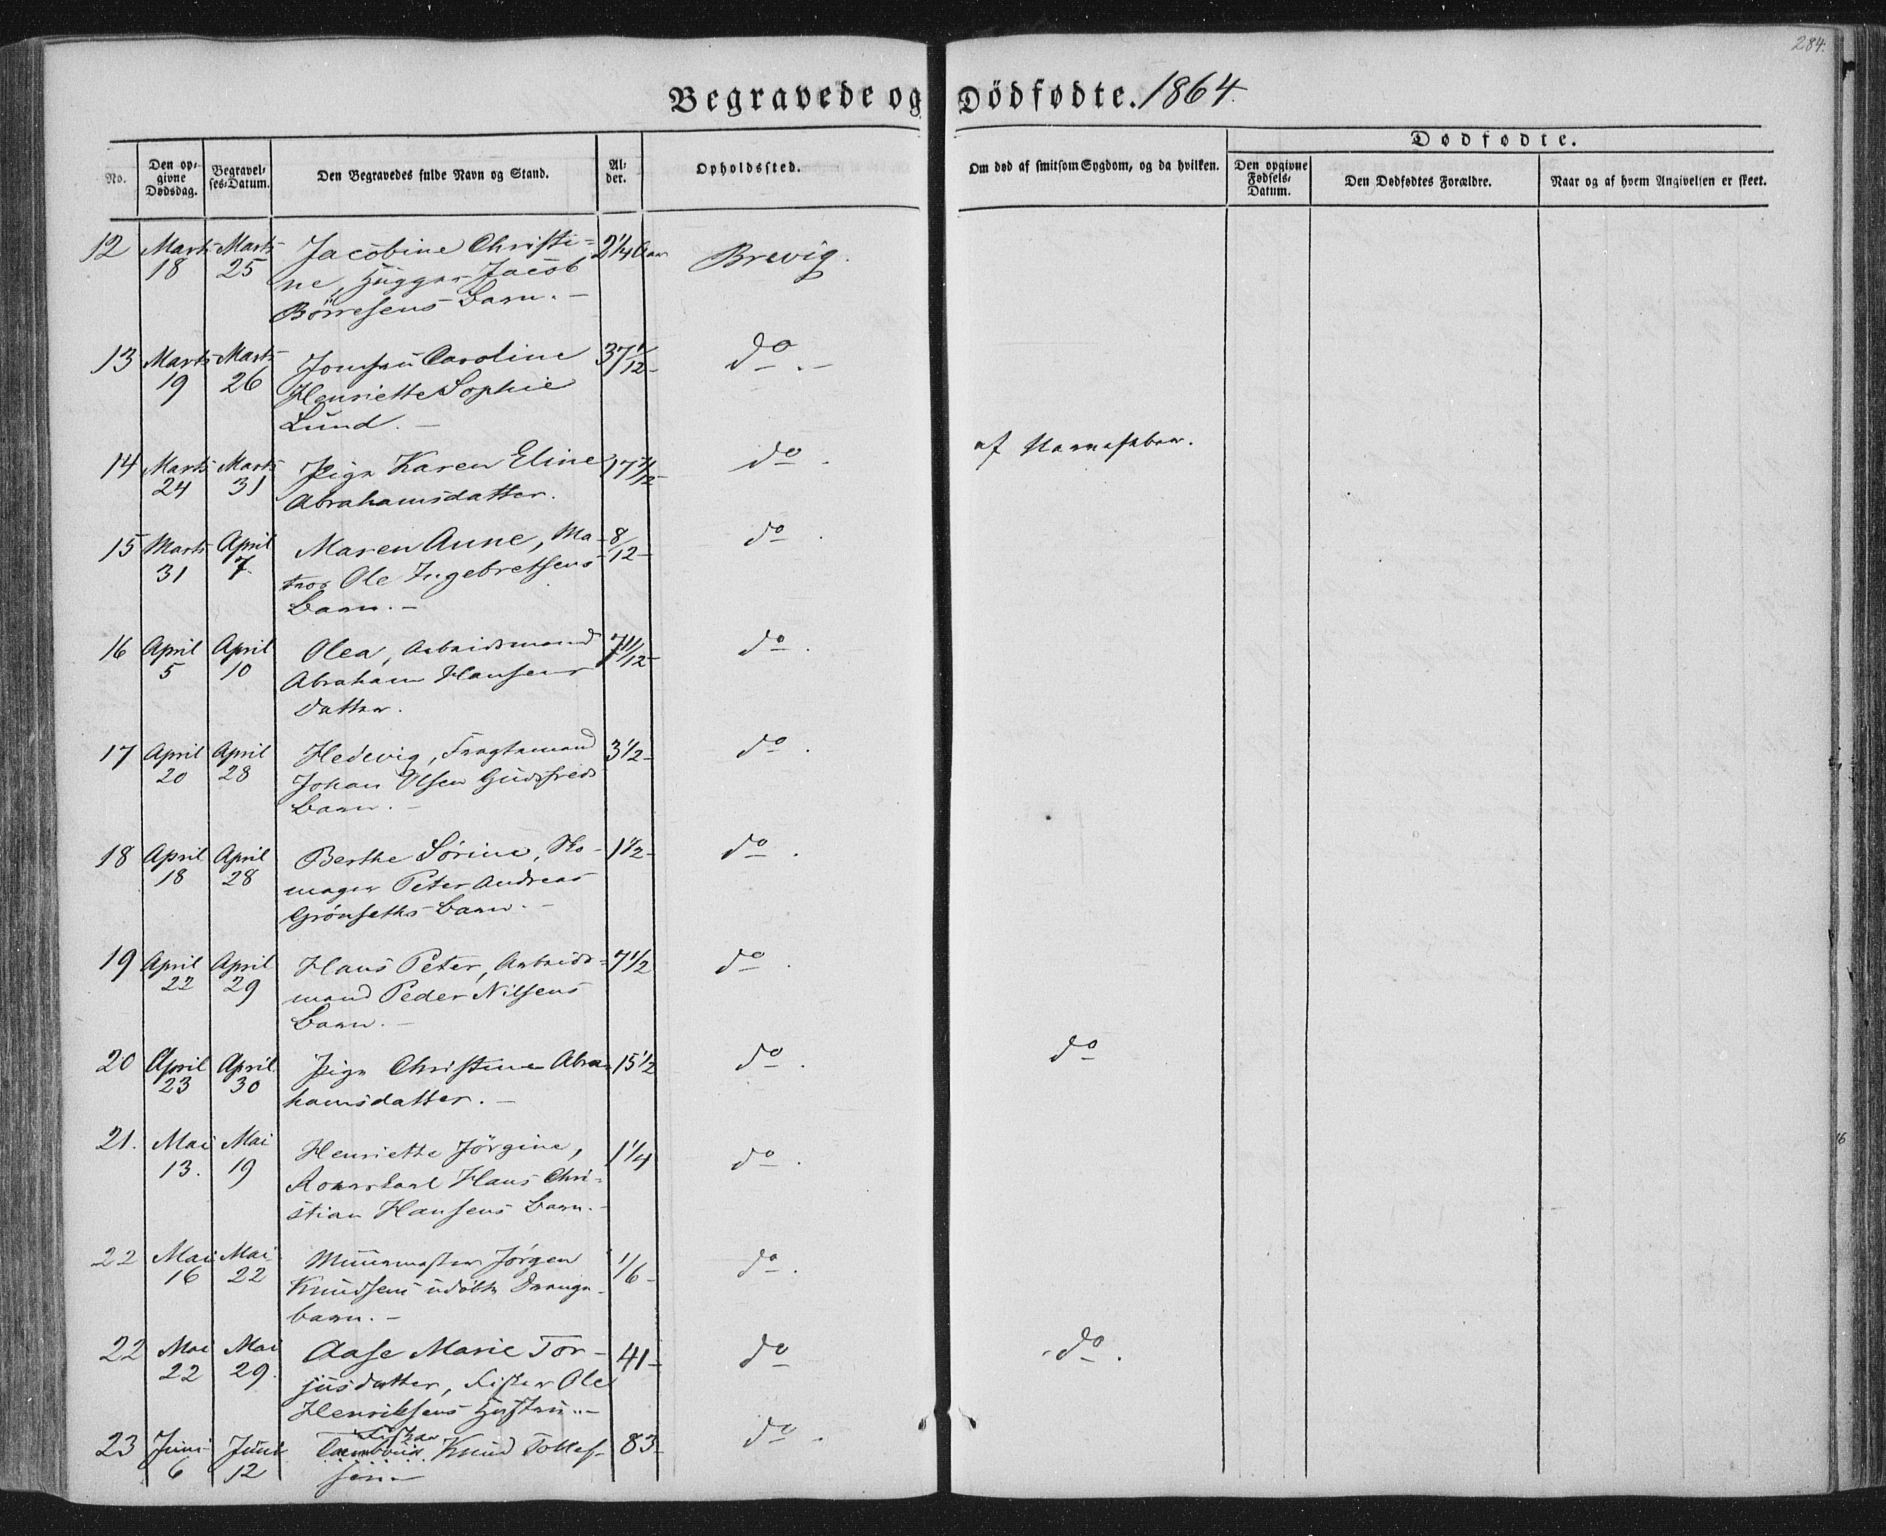 284.
Begravede og Dödfødte. 1864.
No.
Den op-
givne
Dødsdag.
Begravel-
ses-Datum.
Den Begravedes fulde Navn og Stand.
Al-
der.
Opholdssted.
Om død af smitsom Sygdom, og da hvilken.
Dødfødte.
Den opgivne
Fødsels-
Datum.
Den Dødfødtes Forældre.
Naar og af hvem Angivelsen er skeet.
12 Marts 18 Marts 25 Jacobine Christi- 2 1/4 Aar Brevig.
ne, Jacob
Börresens Barn. –
13 Marts 19 Marts 26 Jomfru Caroline 37 1/12 – do. –
Henriette Sophie
Lund. –
14 Marts 24 Marts 31 Pige Karen Eline 17 do. af Nervefeber.
Abrahamsdatter.
15 Marts 31 April 7. Maren Anne, Ma- 8/12 – do.
tros Ole Ingebretsens
Barn. –
16 April 5 April 10 Olea, Arbeidsmand 7 11/12 – do.
Abraham Hansens
Datter.
17 April 20 April 28 Hedevig, Fragtemand 3 1/2 – do.
Johan Olsen
Barn. –
18 April 18 April 28 Berthe Sörine, Sko- 1 1/2 – do.
mager Peter Andreas
Grönseths Barn. –
19 April 22 April 29 Hans Peter, Arbeids- 7 1/2 do.
mand Peder Nilsens
Barn. –
20 April 23 April 30 Pige Christine Abra- 15 1/2 do. do
hamsdatter. –
21. Mai 13. Mai 19 Henriette Jörgine, 1 1/4 do.
Hans Chri-
stian Hansens Barn. –
22 Mai 16 Mai 22 Muurmester Jörgen 1/6 – do.
Knudsens udöbte Drenge-
barn. –
22 Mai 22 Mai 29. Aase Marie Tor- 41 – do do.
jusdatter, Fisker Ole
Henriksens Hustru. –
Fisker
23 Juni 6 Juni 12 Knud Tollef- 83 – do.
sen –